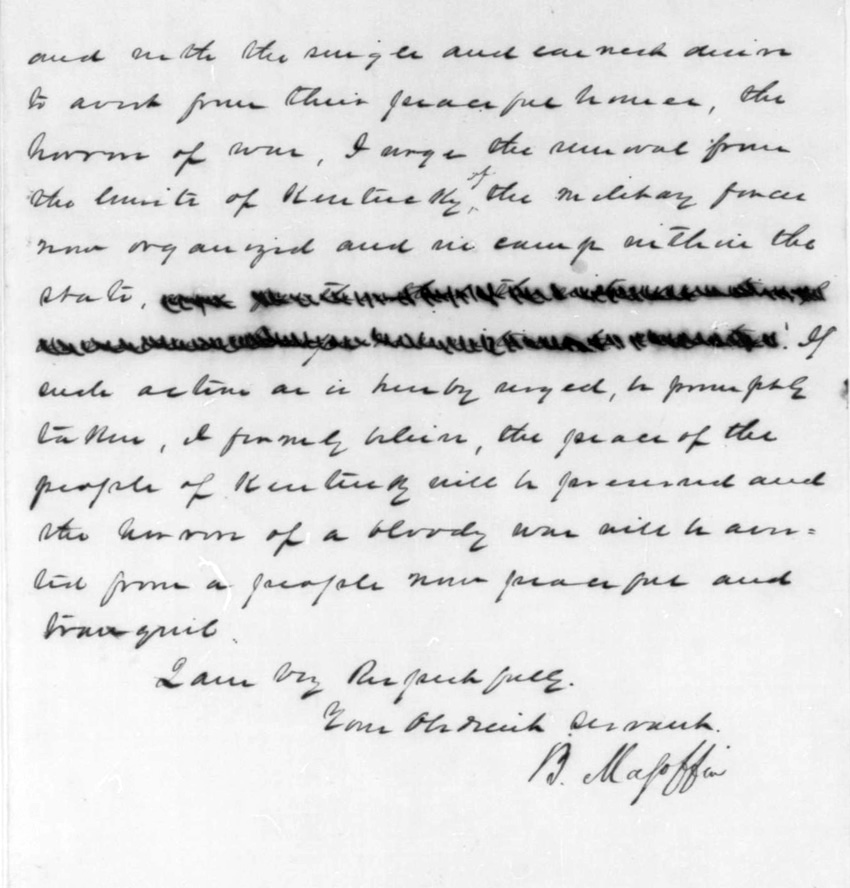 and with the single and earnest desire
to avert from their peaceful homes, the
horrors of war, I urge the removal from
the limits of Kentucky of, the military forces
now organized and in camp within the
state,
If
such action as is hereby urged, be promptly
taken, I firmly believe, the peace of the
people of Kentucky will be preserved and
the horrors of a bloody war will be aver=
ted from a people now peaceful and
tranquil.
I am Very Respectfully.
Your Obedient Servant.
B. Magoffin